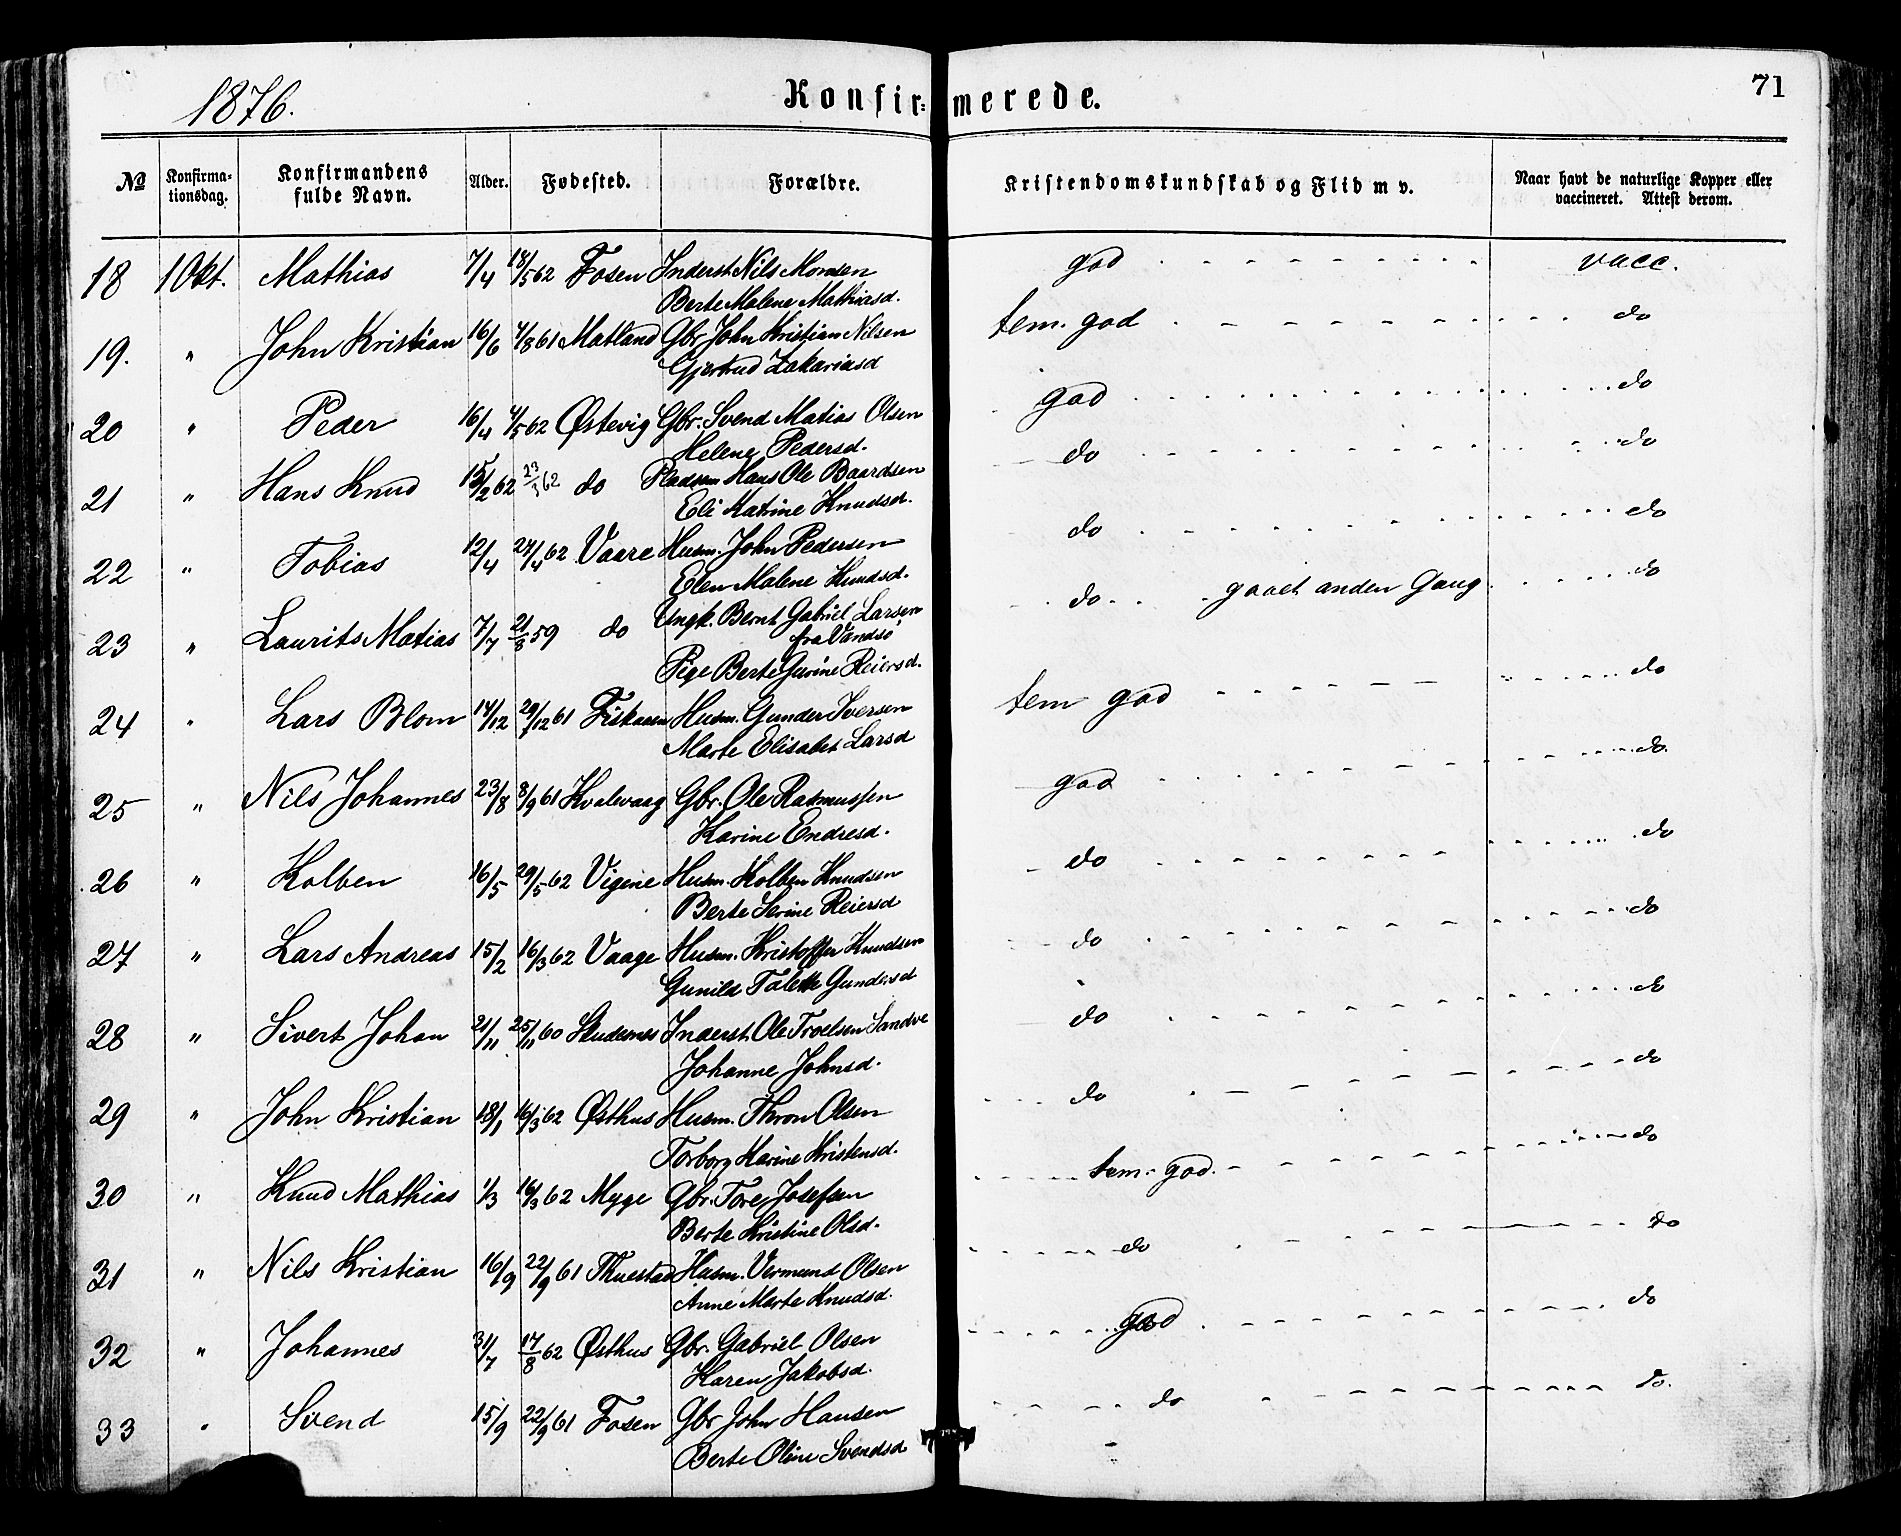 1876.
Konfir=merede.
71
№
Konfirma=tionsdag.
Konfirmandens fulde Navn.
Alder.
Fødested.
Forældre.
Kristendomskundskab og Flid m v.
Naar havt de naturlige Kopper eller vaccineret. Attest derom.
18 1 Okt. Mathias 7/4 18/5 62 Fosen Inderst Nils Monsen god vacc.
Berte Malene Mathiasd.
19. " John Kristian 16/6 4/8 61 Matland Gbr John Kristian Nilsen tem. god do
Gjertrud Zakariasd
20 " Peder 16/4 4/5 62 Østevig Gbr. Svend Matias Olsen god do
Helene Pedersd.
21 " Hans Knud 15/2 62 23/3 62 do Pladsm Hans Ole Baardsen do do
Eli Katrine Knudsd.
22 " Tobias 12/4 27/4 62 Vaare Husm. John Pedersen do do
Elen Malene Knudsd.
23 " Laurits Matias 7/7 21/8 59 do Ungk. Bernt Gabriel Larsen do gaaet anden Gang do
fra Vandsø
Pige Berte Gurine Reiersd.
24 " Lars Blom 14/12 29/12 61 Fiskaaen Husm. Gunder Iversen tem god do
Marte Elisabet Larsd
25 " Nils Johannes 23/8 8/9 61 Kvalevaag Gbr. Ole Rasmussen god do
Karine Endresd.
26 " Kolben 16/5 29/5 62 Vigene Husm. Kolben Knudsen do do
Berte Serine Reiersd
27 " Lars Andreas 15/2 16/3 62 Vaage Husm. Kristoffer Knudsen do do
Gunild Talette Gundersd
28 " Sivert Johan 21/11 25/11 60 Skudesnes Inderst. Ole Troelsen Sandve do do
Johanne Johnsd.
29 " John Kristian 18/1 16/3 62 Østhus Husm. Thron Olsen do do
Torborg Karine Kristensd.
30 " Knud Mathias 1/3 16/3 62 Myge Gbr. Tore Josefsen tem. god. do
Berte Kristine Olsd.
31 " Nils Kristian 16/9 22/9 61 Thuestad Husm. Vermund Olsen do do
Anne Marte Knudsd.
32 " Johannes 31/7 17/8 62 Østhus Gbr. Gabriel Olsen god do
Karen Jakobsd.
33 " Svend 15/9 22/9 61 Fosen Gbr John Hansen do do.
Berte Oline Svendsd.